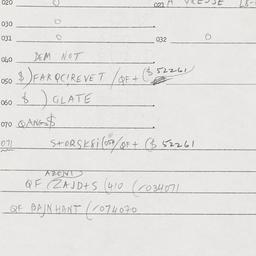 020 0 021 A
030 0
031 0 032 0
040 DEM NOT
050 $)FARQCIREVET/QF+($ 52261
060 $ ) GLATE
070 QANG$
071 STORSKEI(05)/QF+($ 52261
AZENI)
QF (ZAJD+S (410 (r034071
QF BAJNHANT (r074070